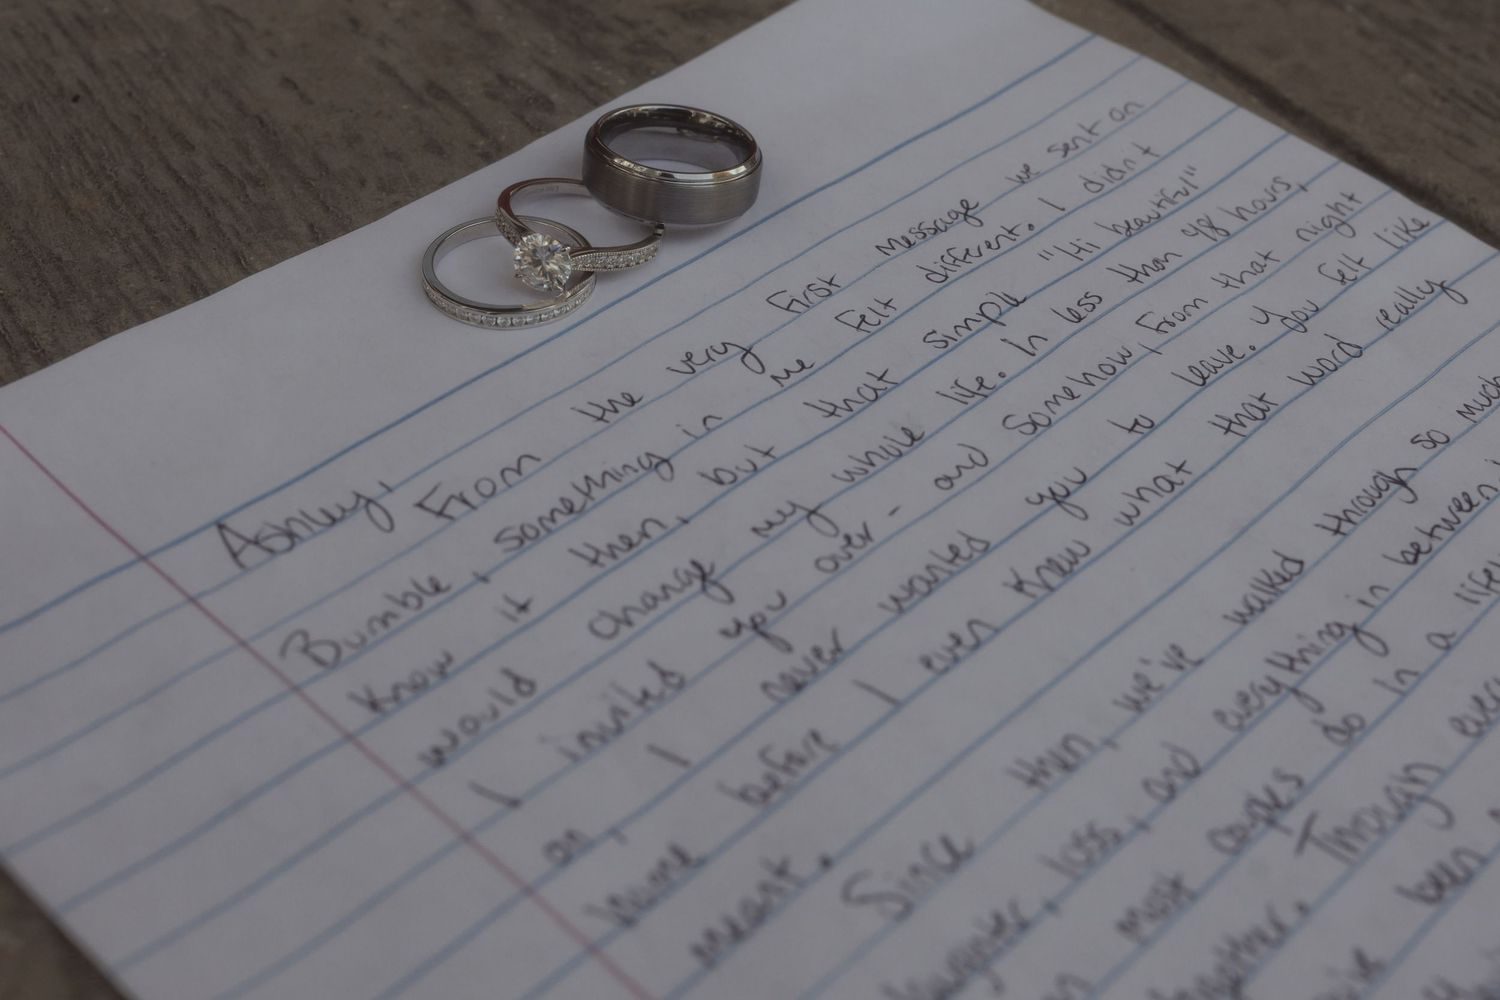 Ashley,
From the very first message we sent on
Bumble, something in me felt different. I didn't
know it then, but that simple "Hi beautiful"
would change my whole life. In less than 48 hours,
I invited you over - and somehow, from that night
on, I never wanted you to leave. You felt like
home before I even knew what that word really
meant.
Since then, we've walked through so much
laughter, loss, and everything in between
most couples do in a
together. Through
been